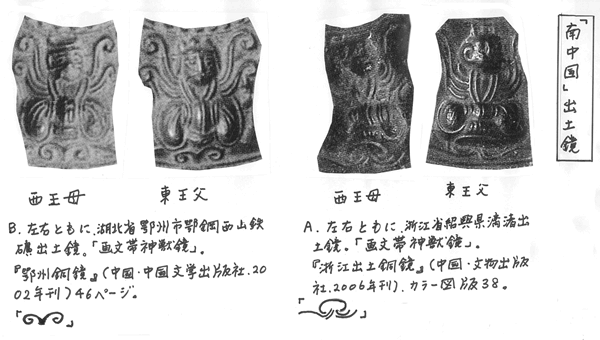 「南中国」出土鏡
西王母
東王父
A. 左右ともに、浙江省紹興県漓渚出
土鏡。「画文帯神獣鏡」。
『浙江出土銅鏡』(中国・文物出版
社.2006年刊)、カラー図版38。
西王母
東王父
B. 左右ともに、湖北省鄂州市鄂鋼西山鉄
礦出土鏡。「画文帯神獣鏡」。
『鄂州銅鏡』(中国・中国文学出版社.20
02年刊)46ページ。